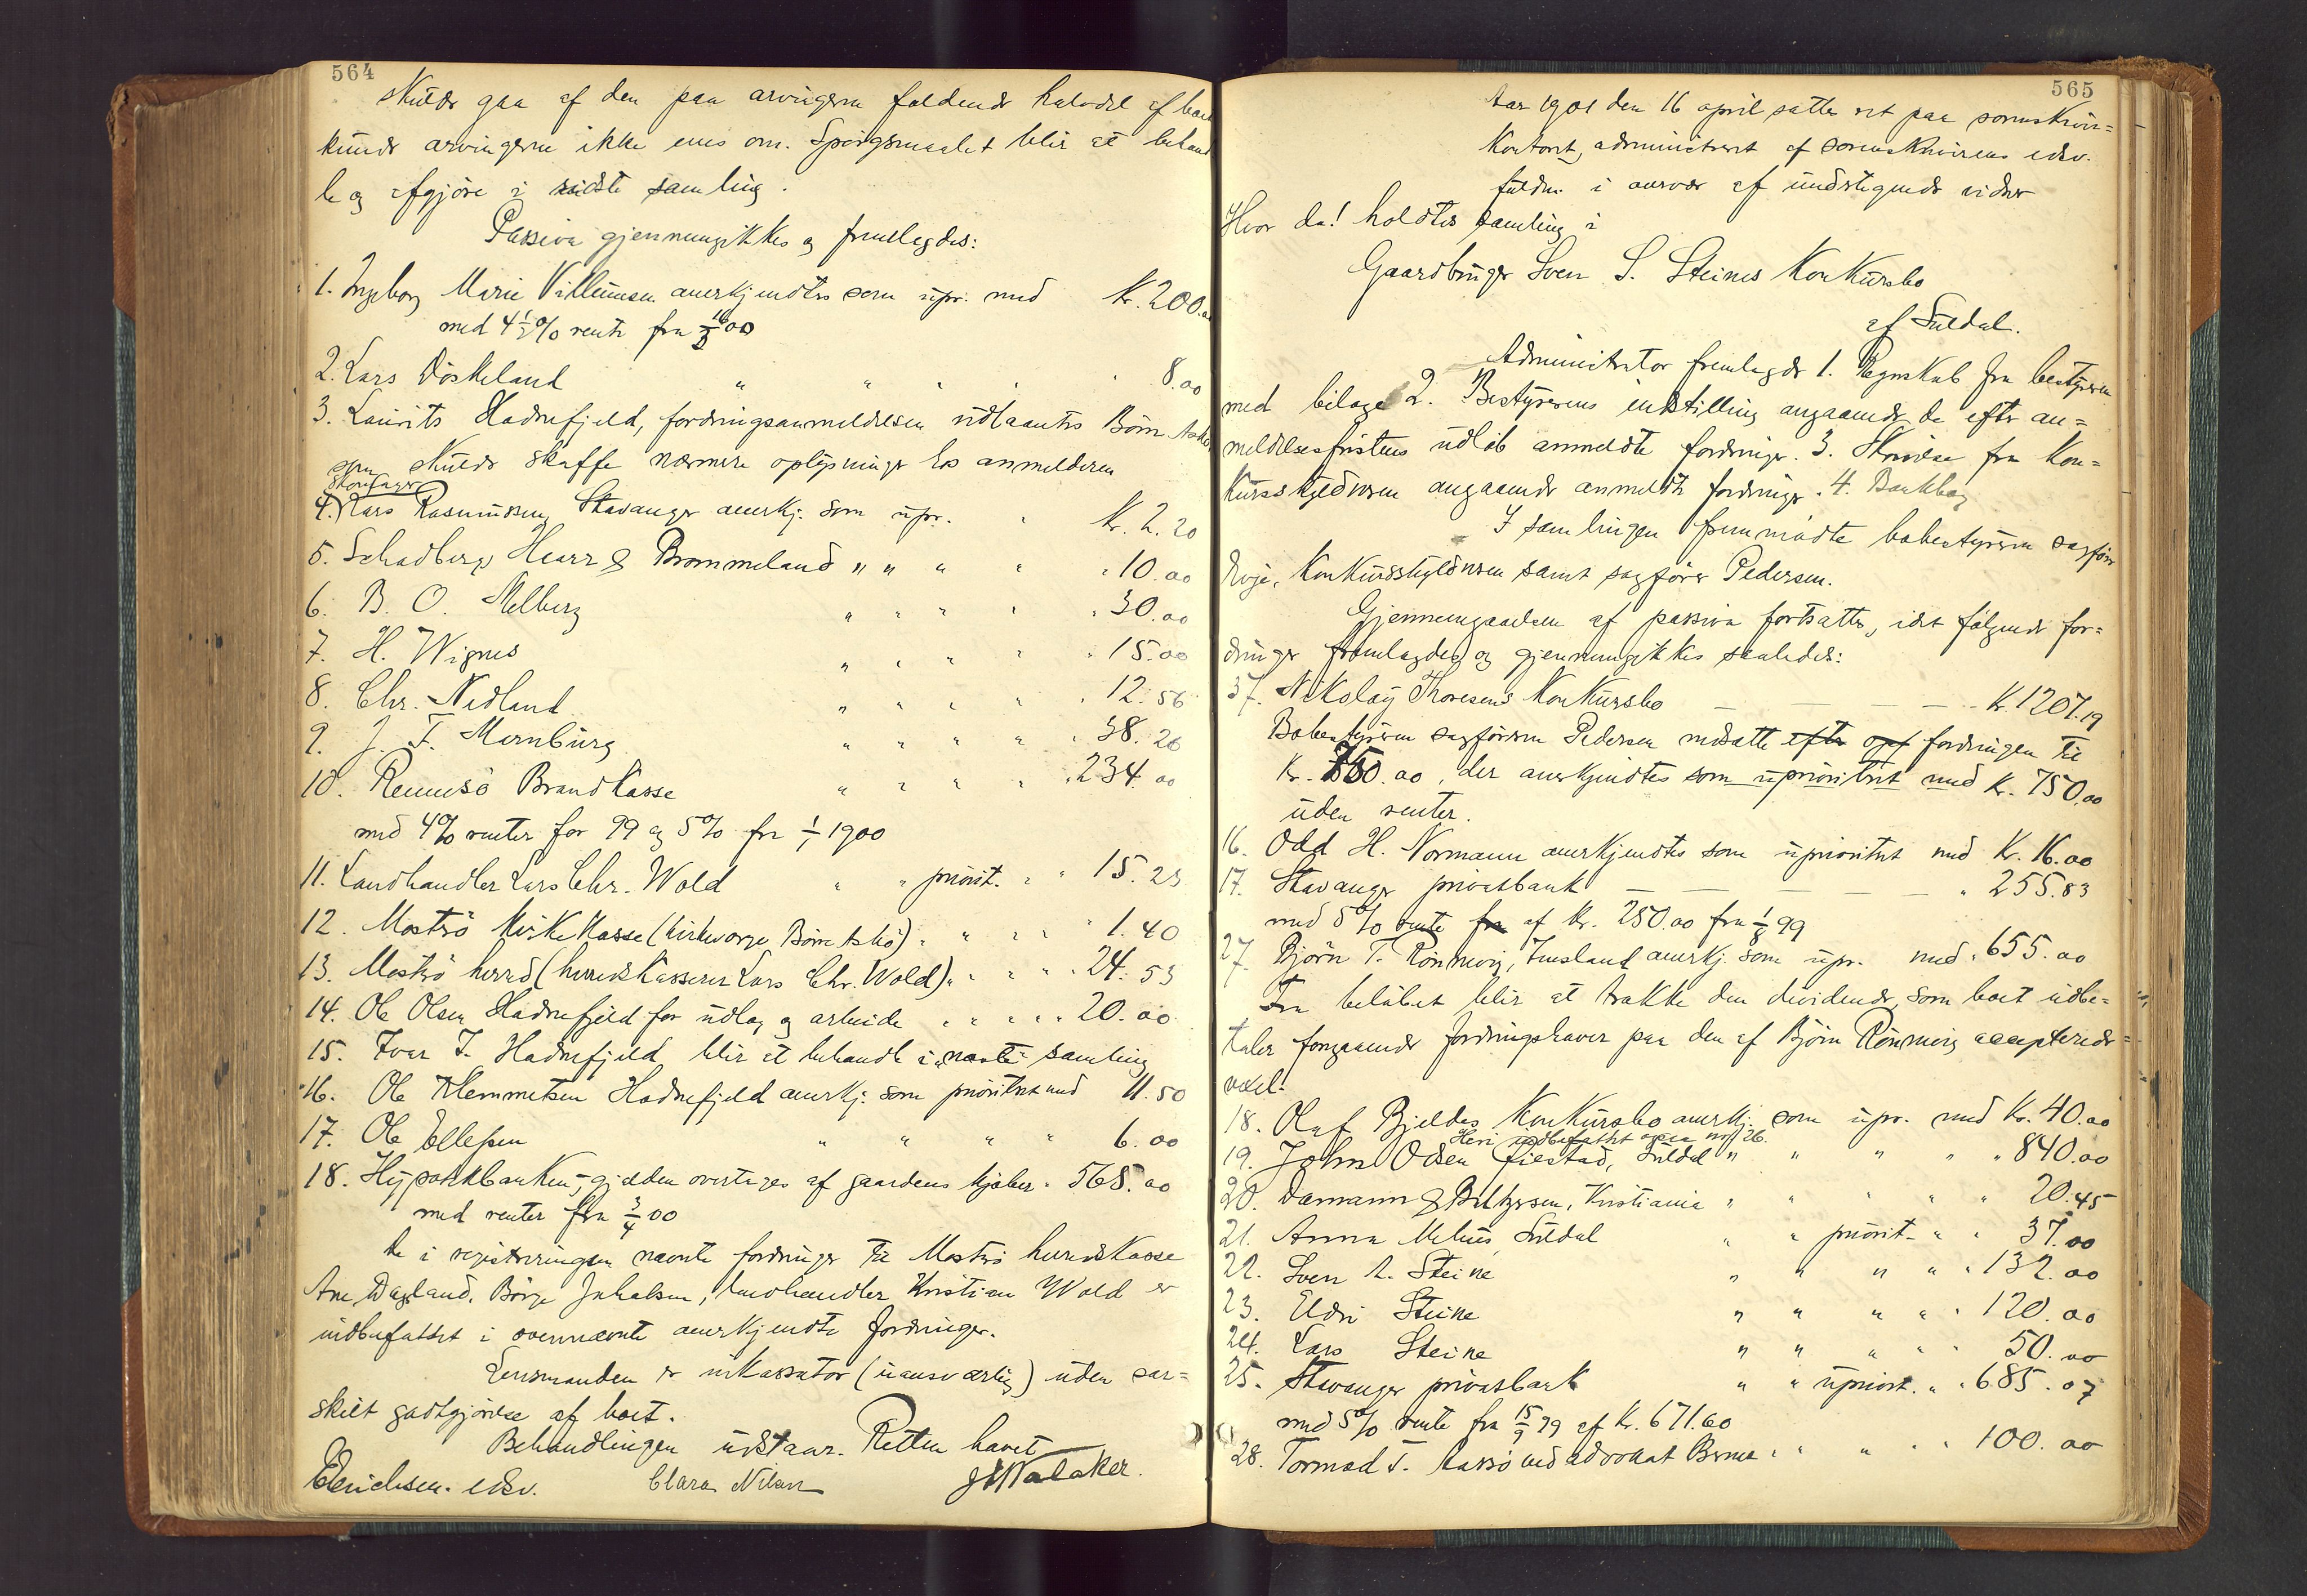 564
skulde gaa af den paa arvingerne faldende halvdel af boet
kunde arvingerne ikke enes om. Spørgsmaalet blir at behand
le og afgjøre i sidste samling.
Passiva gjennemgikkes og fremlagdes:
1. Ingeborg Marie Villumsen anerkjendtes som upr. med Kr. 200.00
med 4½% rente fra 00
2. Lars Døskeland " " " " " 8.00
3. Laurits Hadnefjeld, fordringsanmeldelsen udlaantes Børn
som skulde skaffe nærmere oplysninger hos anmelderen
4. Lars Rasmussen, Stavanger anerkj. som upr. " Kr. 2.20
5. Schadberg, Hearr & Brommeland " " " " " 10.00
6. B. O. Melberg " " " " " 30.00
7. H. Wignes " " " " " 15.00
8. Chr. Nedland " " " " " 12.56
9. J. F. Mernburg " " " " " 38.20
10. Rennesø Brandkasse " " " " " 234.00
med 4% renter for 99 og 5% fra 1/1 1900
11. Landhandler Lars Chr. Wold " " priorit. " " 15.25
12. Mosterø Kirkekasse (kirkeværge Børre Askø) " " " " 1.40
13. Mosterø herred (herredskasserer Lars Chr. Wold) " " " " 24.53
14. Ole Olsen Hadnefjeld for udlæg og arbeide " " " " " 20.00
15. Ivar I. Hadnefjeld blir at behandle i næste samling
16. Ole Klemmetsen Hadnefjeld anerkj. som prioritert med 11.50
17. Ole Ellefsen " " " " 6.00
18. Hypothekbanken, gjælden overtages af gaardens kjøber " 568.00
med renter fra 3/4 00
De i registreringen nævnte fordringer til Mosterø herredskasse
Ane Dagsland, Børge Jakobsen, landhandler Kristian Wold er
indbefattet i ovennævnte anerkjendte fordringer.
Lensmanden er inkassator (uansvarlig) uden sær=
skilt godtgjørelse af boet.
Behandlingen udstaar. Retten hævet
Erichsen. edsv. Clara Nilsen J Walaker.
565
Aar 1901 den 16 april sattes ret paa sorenskriver=
kontoret, administreret af sorenskriverens edsv.
fuldm. i overvær af undertegnede vidner
Hvor da! holdtes samling i
Gaardbruger Sven S. Steines Konkursbo
af Suldal.
Administrator fremlagde 1. Regnskab fra bestyreren
med bilage 2. Bestyrerens indstilling angaaende de efter an=
meldelsesfristens udløb anmeldte fordringer. 3. Skrivelse fra Kon=
kursskyldneren angaaende anmeldte fordringer. 4. Bankbog
I samlingen fremmødte bobestyreren sagfører
Konkursskyldneren samt sagfører Pedersen.
Gjennemgaaelsen af passiva fortsattes, idet følgende for=
dringer fremlagdes og gjennemgikkes saaledes:
37. Nikolay Thoresens Konkursbo — — — — Kr. 1207.19
Bobestyreren sagfører Pedersen nedsatte efter opf fordringen til
Kr. 750.00, der anerkjendtes som uprioritert med Kr. 750.00
uden renter.
16. Odd H. Normann anerkjendtes som uprioritert med Kr. 16.00
17. Stavanger privatbank — — — — — " 255.83
med 5% rente fra af Kr. 250.00 fra 1/8 99
27. Bjørn T. Rønnevig, Imsland anerkj. som upr. med " 655.00
Fra beløbet blir at trække den dividende, som boet udbe=
taler foregaaende fordringshaver paa den af Bjørn Rønnevig accepterede
vexel.
18. Olaf Bjeldes Konkursbo anerkj. som upr. med Kr. 40.00
Heri indbefattet ogsaa no 26.
19. John Olsen Fiestad, Suldal " " " " " 840.00
20. Damann & Biltzersen, Kristiania " " " " " 20.45
21. Anna Melhus Suldal " " priorit. " " 37.00
22. Sven L. Steine " " " " " 132.00
23. Eldri Steine " " " " " 120.00
24. Lars Steine " " " " " 50.00
25. Stavanger privatbank " " upriorit. " " 685.07
med 5% rente fra 15/9 99 af Kr. 671.60
28. Tormod T. ved advokat " " " " " 100.00